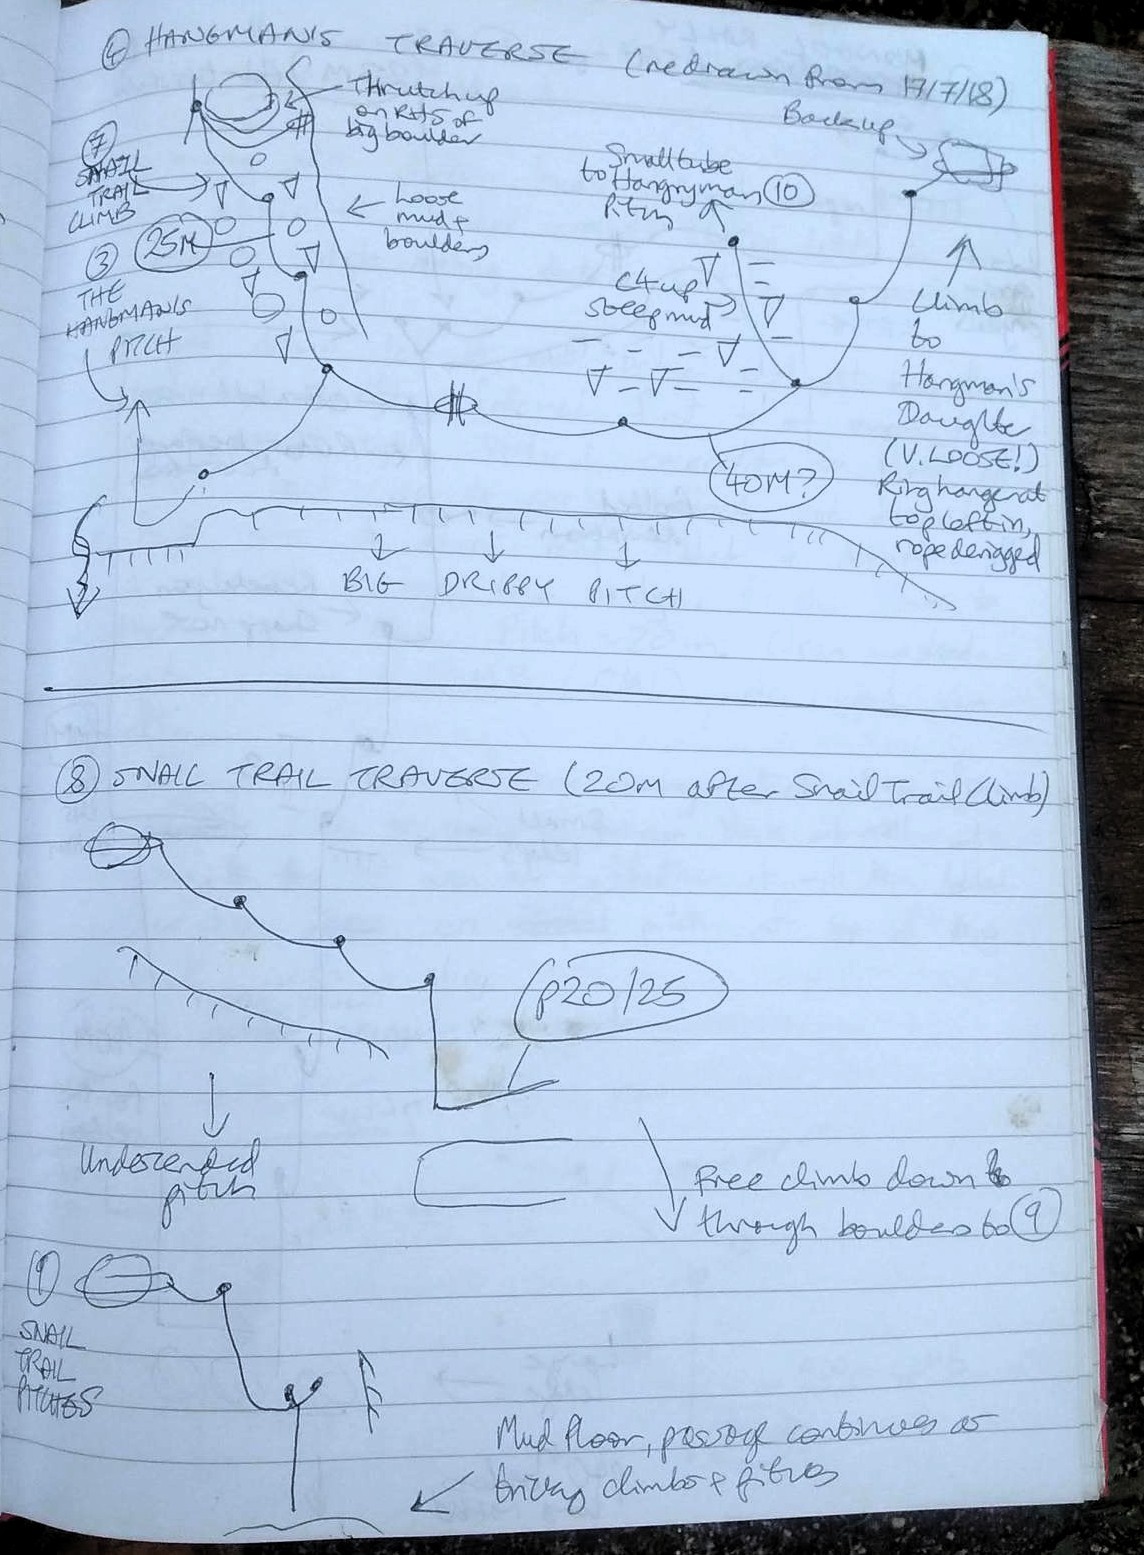 ④ HANGMAN'S TRAVERSE (redrawn from 17/7/18)
Backup
Thrutch up
on RHS of
big boulder
⑦
SNAIL
TRAIL
CLIMB
25M
Loose
mud +
boulders
③
THE
HANGMAN'S
PITCH
Small tube
to Hangryman ⑩
Pitch
C4 up
steep mud
Climb
to
Hangman's
Daughter
(V. LOOSE!)
Ring hanger at
top left in,
rope derigged
40M?
BIG DRIPPY PITCH
⑧ SNAIL TRAIL TRAVERSE (20M after Snail Trail Climb)
p20/25
Undescended
pitch
Free climb down
through boulders to ⑨
SNAIL
TRAIL
PITCHES
Mud floor, passage continues as
tricky climbs + pitches